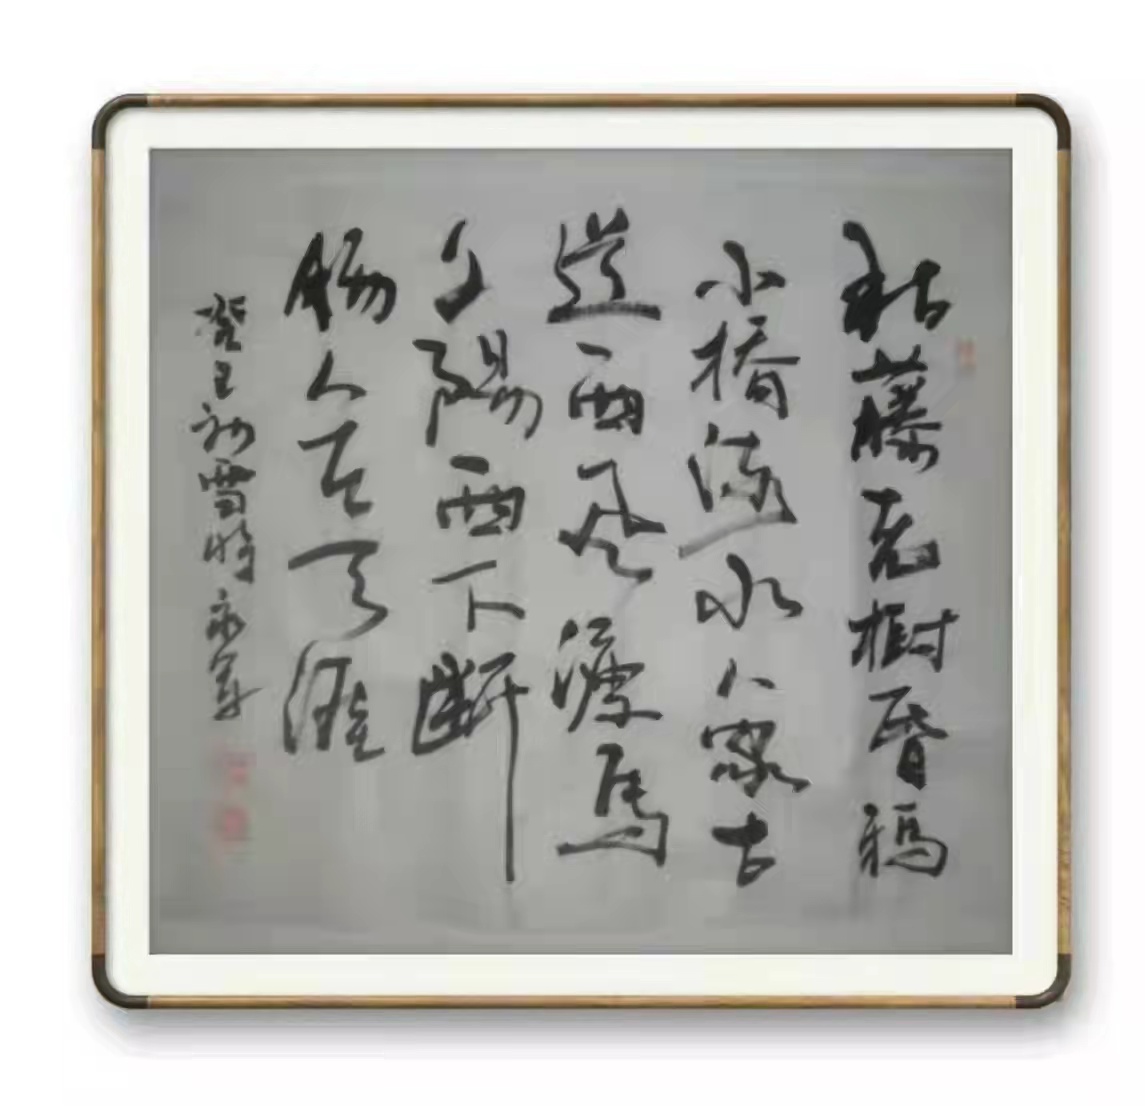 枯藤老樹昏鴉
小橋流水人家古
道西風瘦馬
夕陽西下斷
腸人在天涯
癸初雪時永